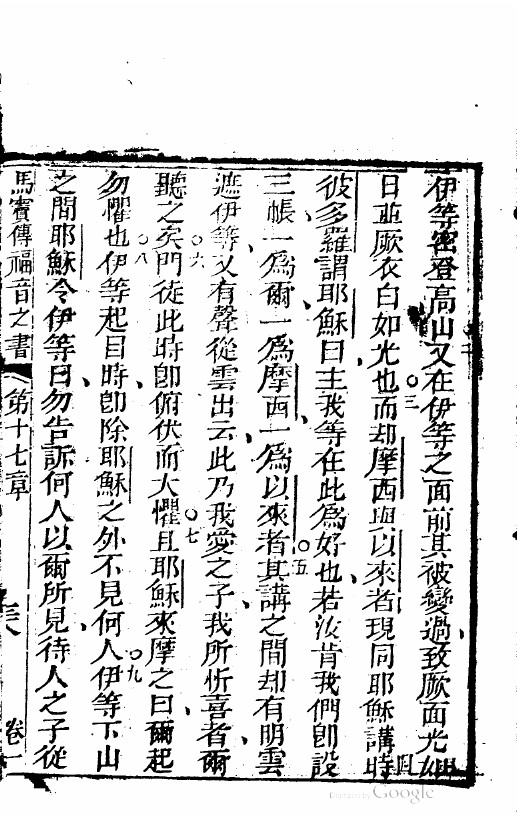 伊等密登高山又在伊等之面前其被變過致厥面光如
日並厥衣白如光也○三而却摩西與以來者現同耶穌講時○四
彼多羅謂耶穌曰主我等在此爲好也若汝肯我們卽設
三帳一爲爾一爲摩西一爲以來者○五其講之間却有明雲
遮伊等又有聲從雲出云此乃我愛之子我所忻喜者爾
聽之矣○六門徒此時卽俯伏而大懼○七且耶穌來摩之曰爾起
勿懼也○八伊等起目時卽除耶穌之外不見何人○九伊等下山
之間耶穌令伊等曰勿告訴何人以爾所見待人之子從
馬竇傳福音之書 第十七章 卷一
Digitized by Google